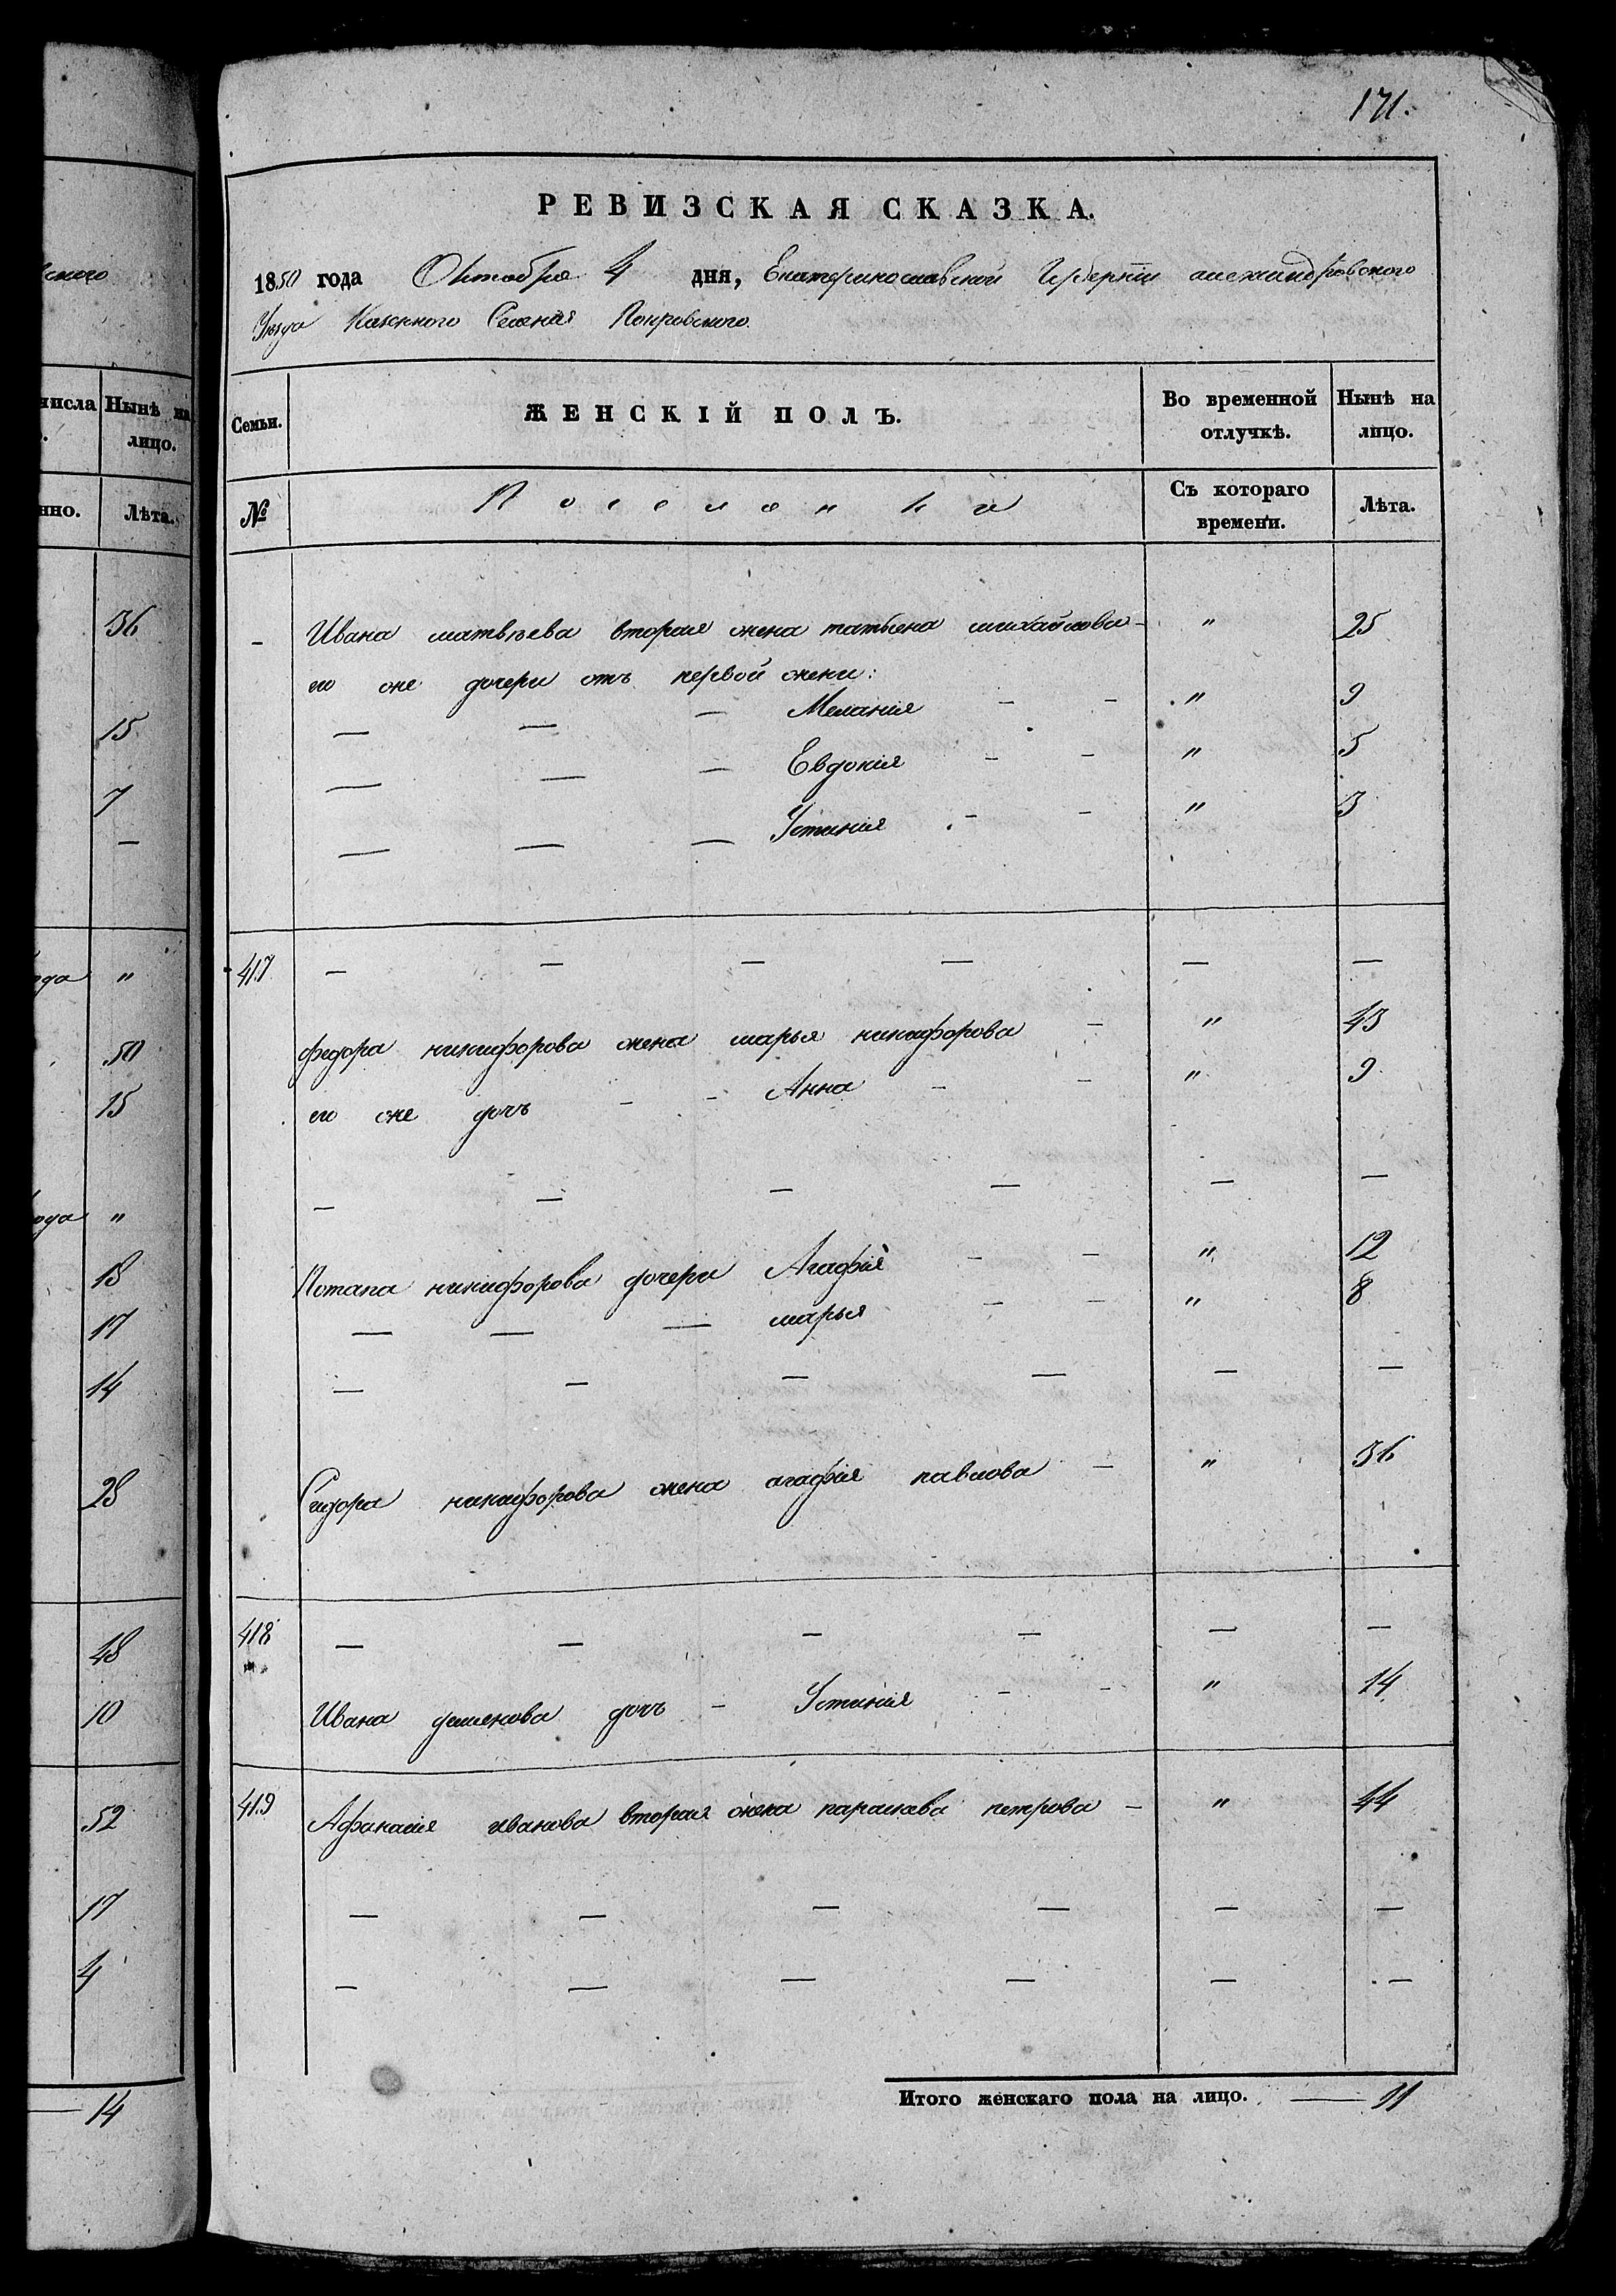 171.
РЕВИЗСКАЯ СКАЗКА.
1850 года Октобря 4 дня, Екатеринославской Губернии александровского
Уезда Казенного Селения Покровского.
Семьи. ЖЕНСКІЙ ПОЛЪ. Во временной отлучкѣ. Нынѣ на лицо.
№ Поселянки Съ котораго времени. Лѣта.
— Ивана матвѣева вторая жена татьена михайлова — " 25
его же дочери отъ первой жени:
— — — Мелания - - " 9
— — — Евдокия - - " 5
— — — Устиния - - " 3
417 — — — — — —
федора никифорова жена марья никифорова - " 43
его же дочь - - Анна - - " 9
— — — — — —
Потапа никифорова дочери Агафия - - " 12
— — — марья - - " 8
— — — — — —
Сидора никифорова жена агафия павлова - " 36
418 — — — — — —
Ивана деменова дочь - Устиния - - " 14
419 Афанасия иванова вторая жена параскева петрова - " 44
— — — — — —
— — — — — —
Итого женскаго пола на лицо. — 11
вского
числа Нынѣ на
лицо.
нно. Лѣта.
36
15
7
—
года "
50
15
года "
18
17
14
28
48
10
52
17
4
— 14